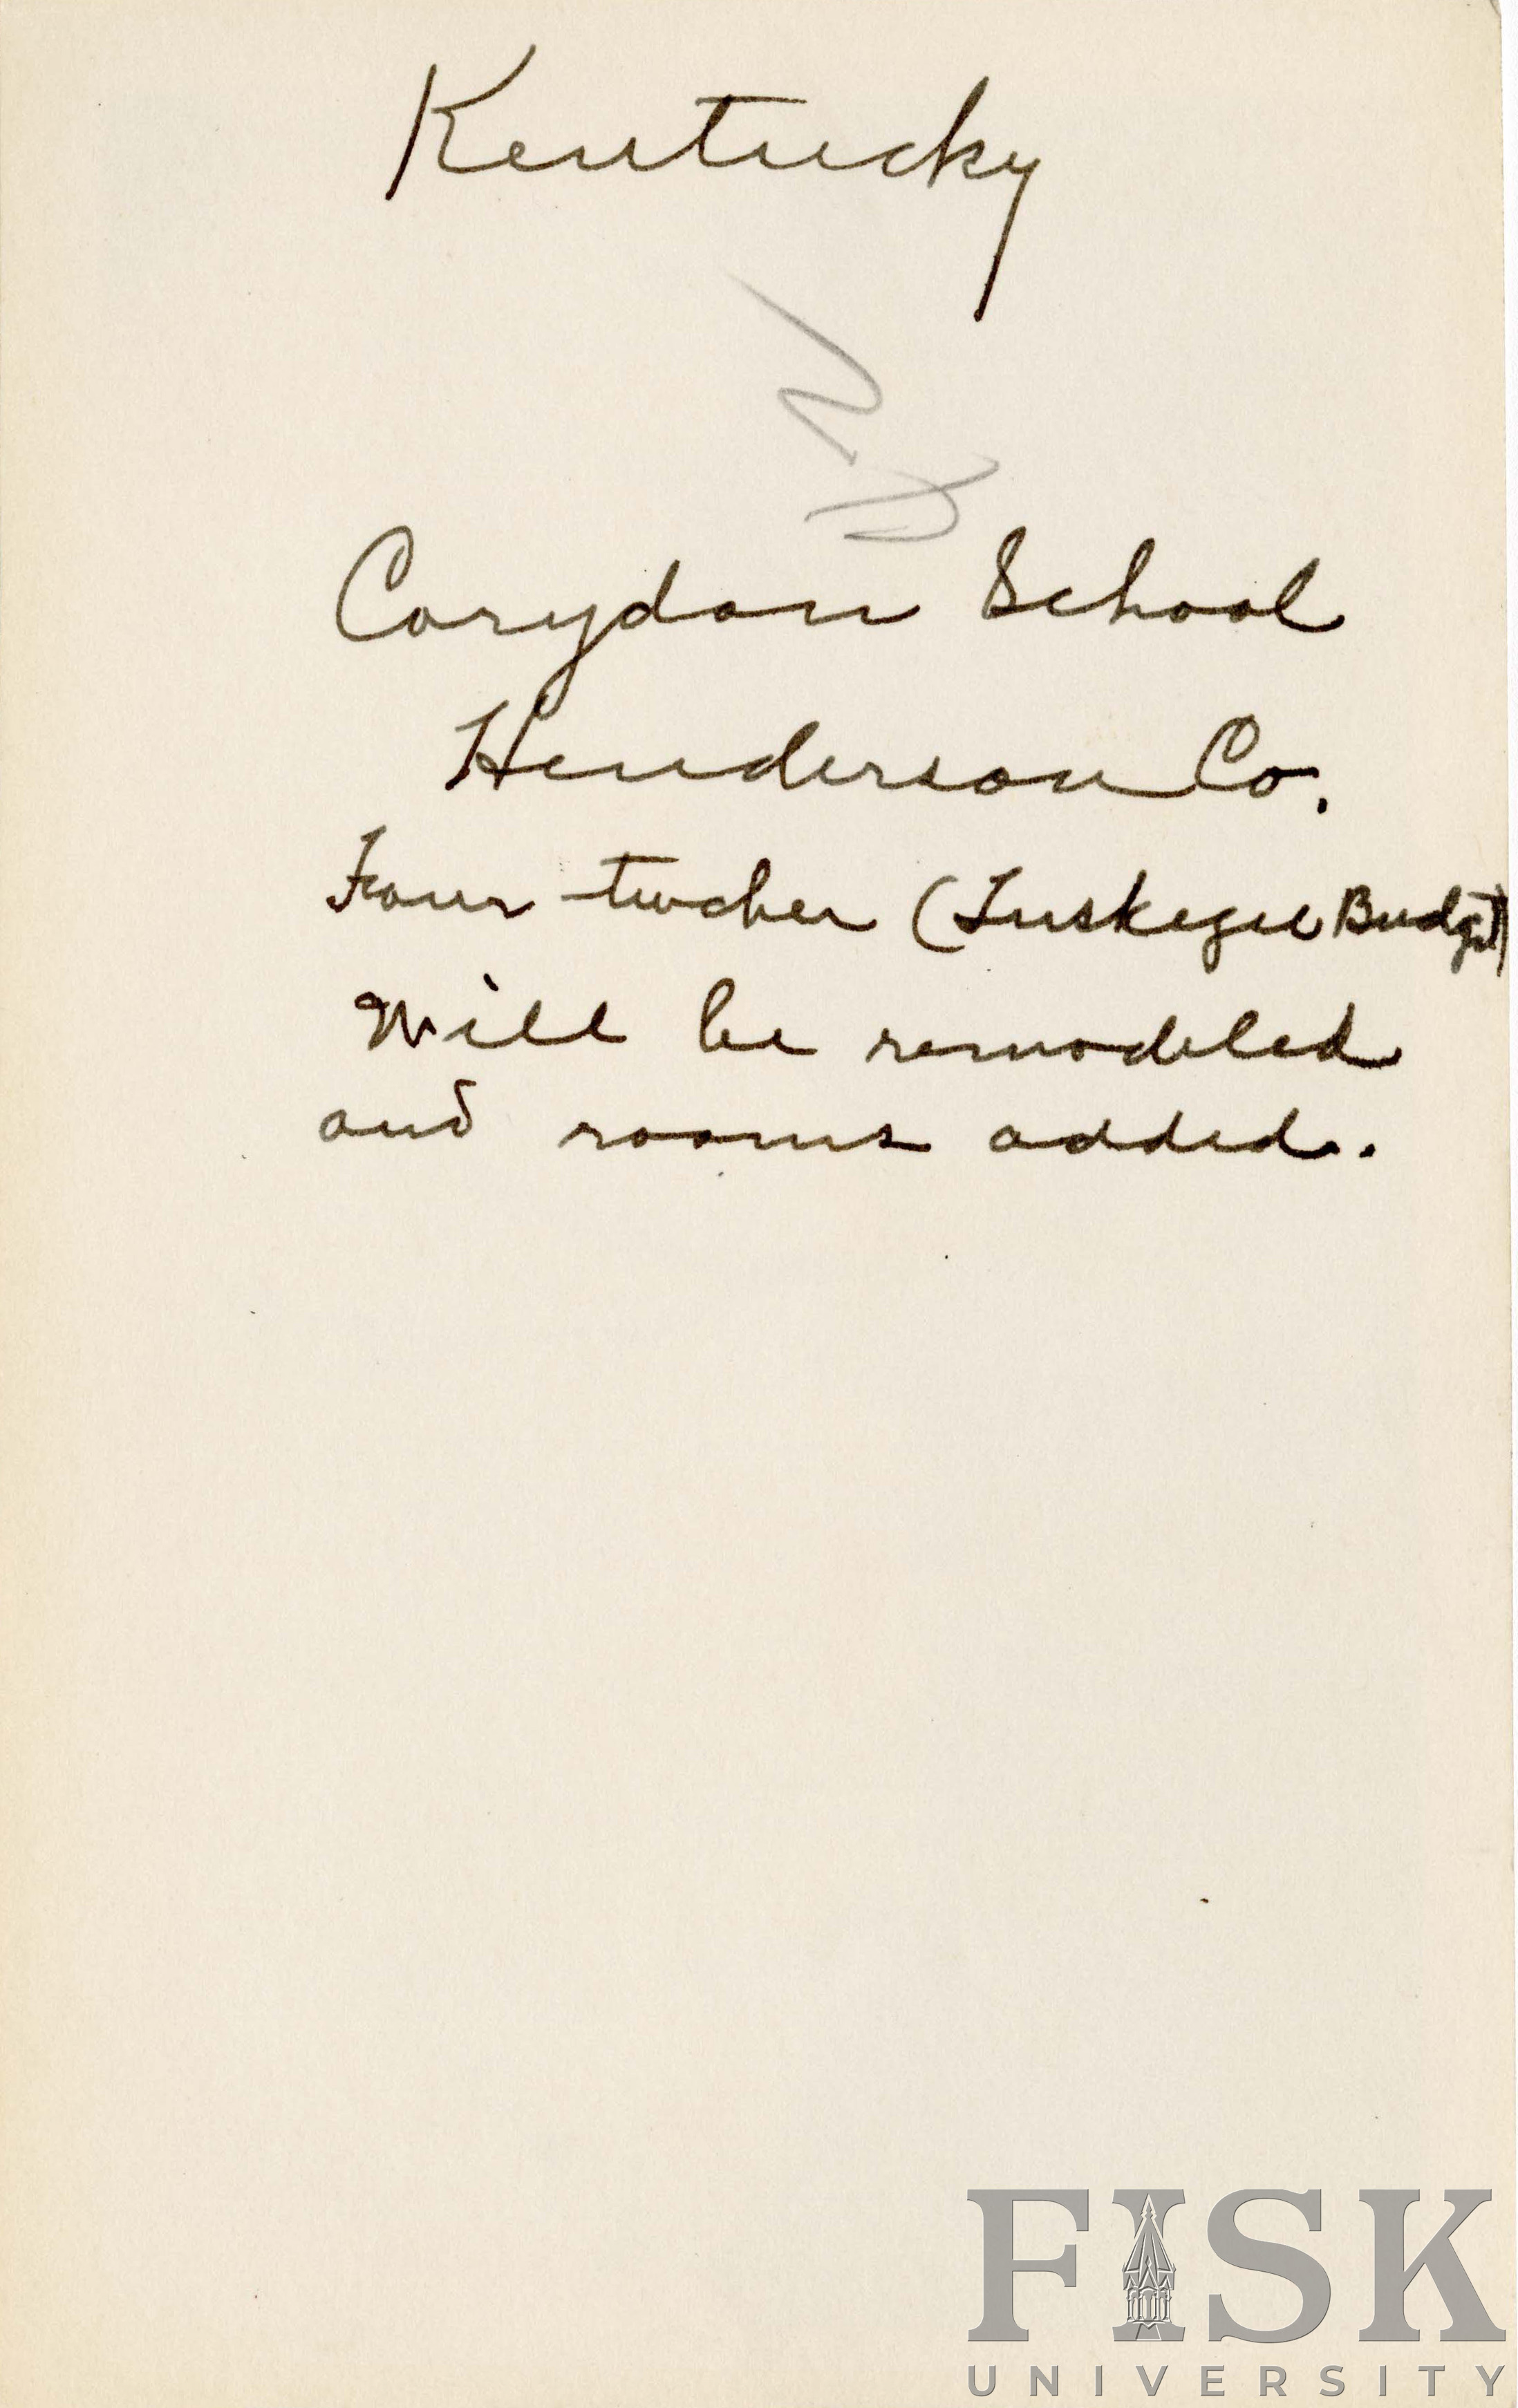 Kentucky
Corydon School
Henderson Co.
Four teacher (Tuskegee Budget)
Will be remodeled
and rooms added.
FISK
UNIVERSITY